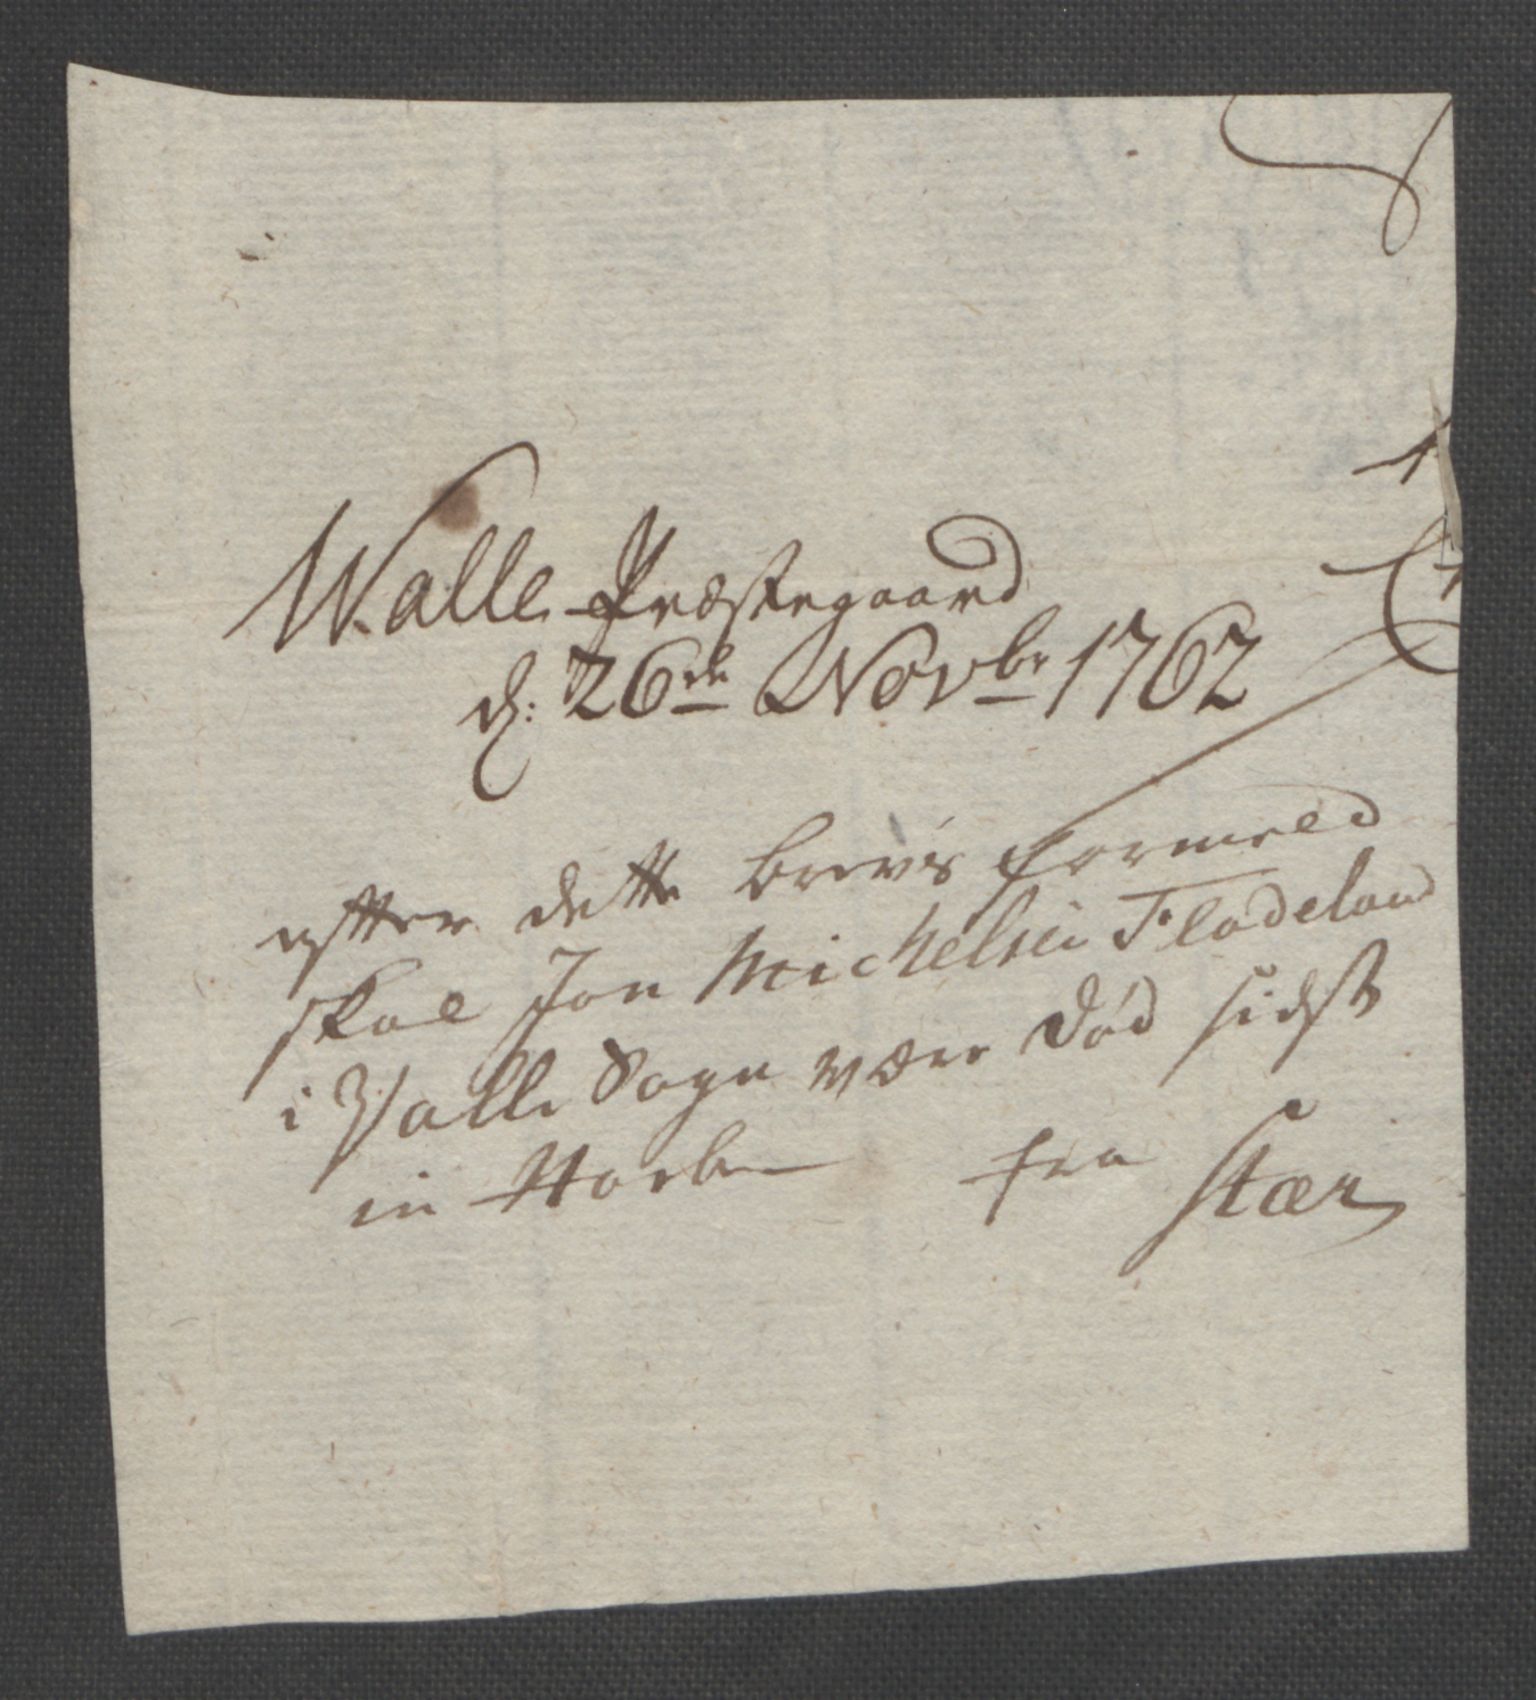 Walle Præstegaard
d: 26de Novbr 1762
efter dette brevs formeld
skal Jon Michelsen Fladeland
i Valle Sogn være død sidst
in
fra Stær